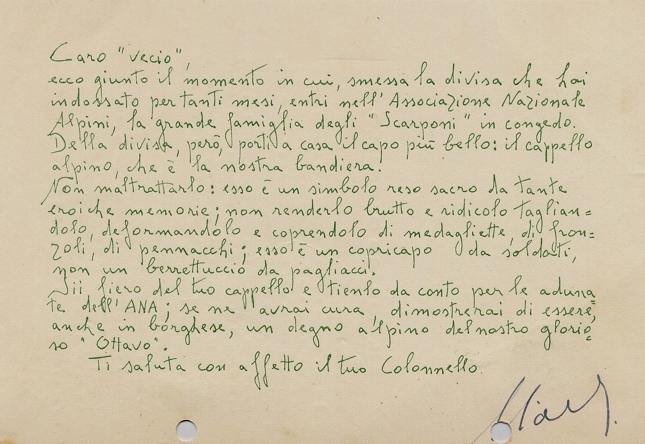 Caro "vecio",
ecco giunto il momento in cui, smessa la divisa che hai
indossato per tanti mesi, entri nell'Associazione Nazionale
Alpini, la grande famiglia degli "Scarponi" in congedo.
Della divisa, però, porti a casa il capo più bello: il cappello
alpino, che è la nostra bandiera.
Non maltrattarlo: esso è un simbolo reso sacro da tante
eroiche memorie; non renderlo brutto e ridicolo taglian=
dolo, deformandolo e coprendolo di medagliette, di fron=
zoli, di pennacchi; esso è un copricapo da soldati,
non un berrettuccio da pagliacci.
Sii fiero del tuo cappello e tienlo da conto per le aduna=
te dell'ANA; se ne avrai cura, dimostrerai di essere,
anche in borghese, un degno alpino del nostro glorio=
so "Ottavo".
Ti saluta con affetto il tuo Colonnello